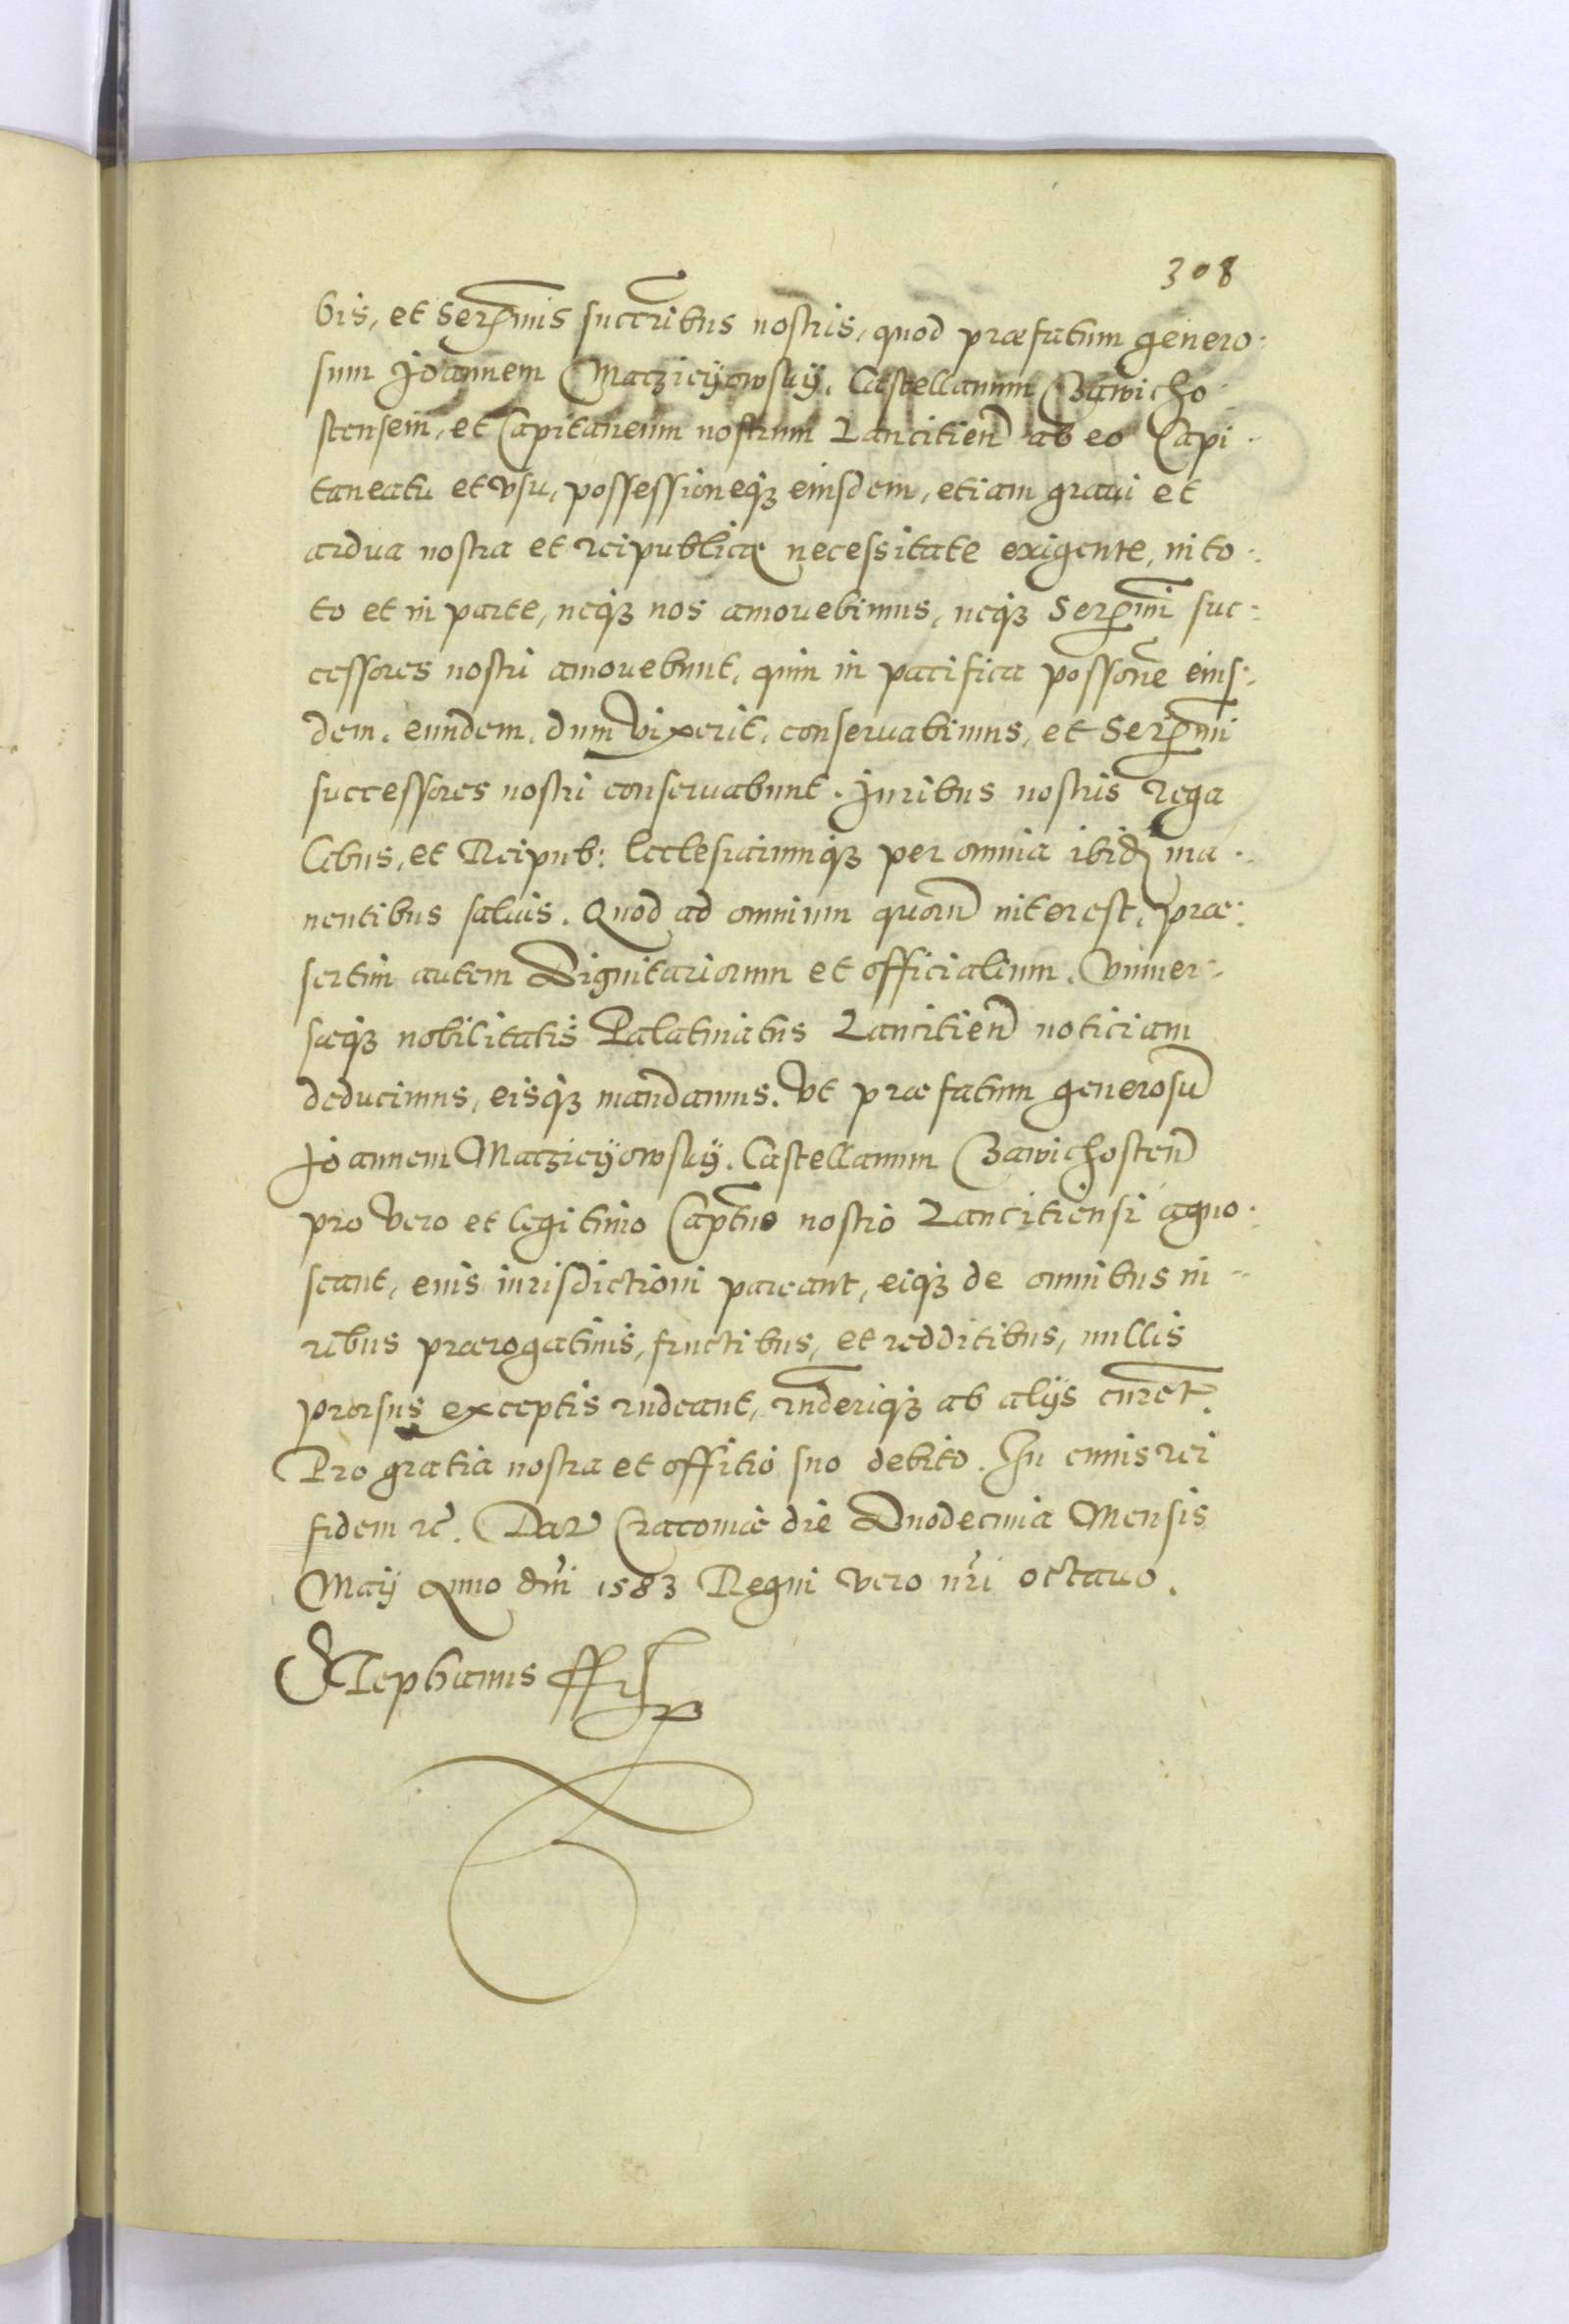 308
bis, et Serenmis succribus nostris, quod præfatum genero-
sum Joannem Maczieyowsky. Castellanum Zawicho
stensem, et Capitaneum nostrum Lancitien ab eo Capi-
taneatu et vsu, possessioneq3 eiusdem, etiam graui et
ardua nostra et reipublicæ necessitate exigente, in to-
to et in parte, neq3 nos amouebimus, neq3 Serenmi suc-
cessores nostri amouebunt, quin in pacifica possone eius-
dem, eundem, dum vixerit, conseruabimus, et Serenmi
successores nostri conseruabunt. Juribus nostris rega
libus, et Reipub: Ecclesiarumq3 per omnia ibid ma-
nentibus saluis. Quod ad omnium quorū interest, præ-
sertim autem Dignitariorum et officialium, Vniuer-
sæq3 nobilitatis Palatinatus Lancitien noticiam
deducimus, eisq3 mandamus. Vt præfatum generosū
Joannem Maczieyowsky. Castellanum Zawichosten
pro vero et legitimo Captneo nostro Lancitiensi agno-
scant, eius iurisdictioni pareant, eiq3 de omnibus iu-
ribus prærogatiuis, fructibus, et redditibus, nullis
prorsus exceptis rndeant, rnderiq3 ab alijs curent.
Pro gratia nostra et offitio suo debito. In cuius rei
fidem rc. Dat Cracouiæ die Duodecima Mensis
Maij Anno dni 1583 Regni vero nri octauo.
Stephanus